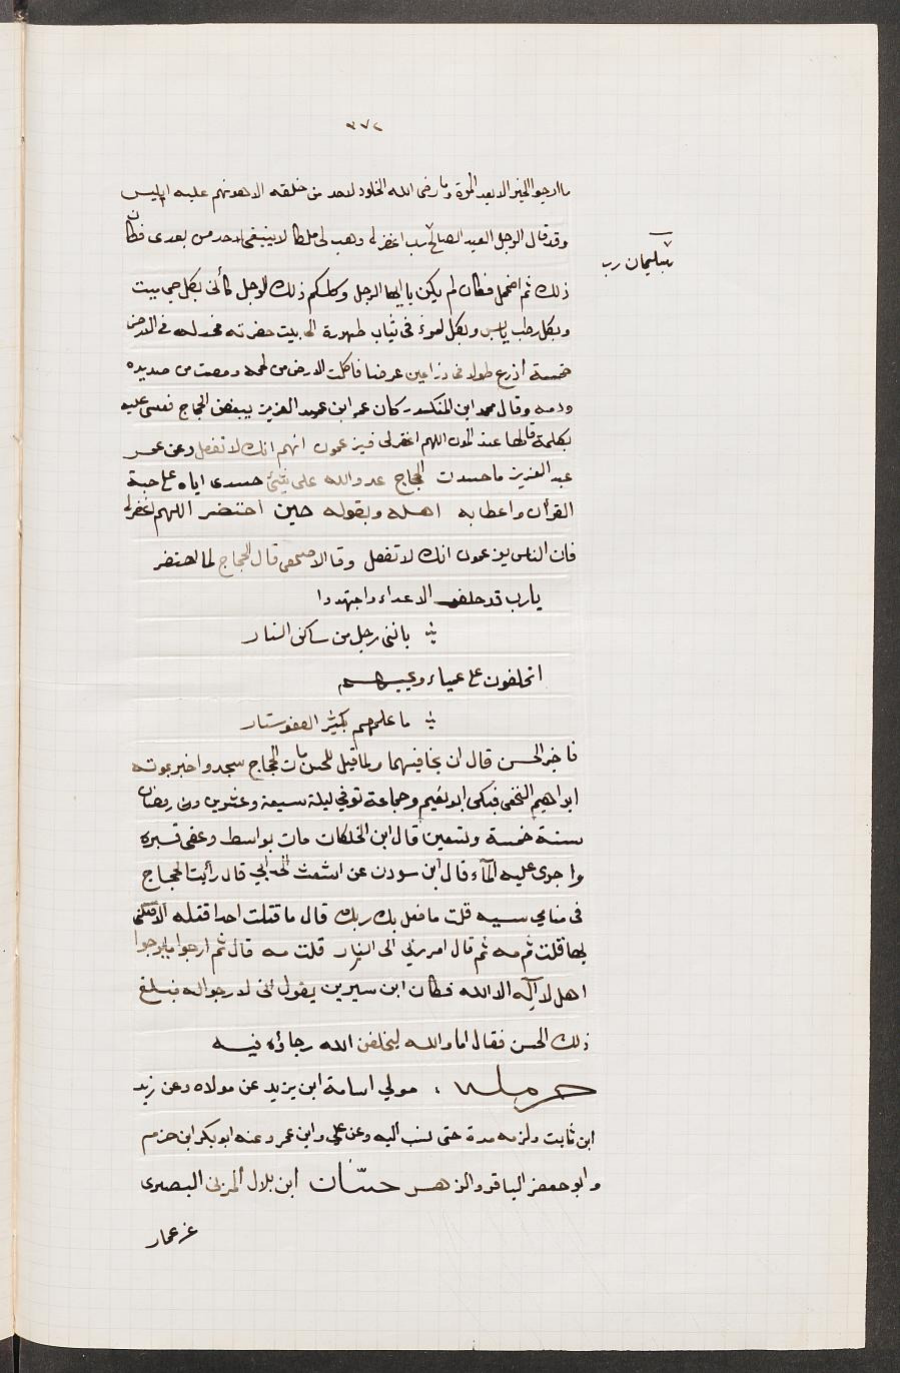 ٣٧٢
ما ارجوا الخير الا بعد الموة وما رضى الله الخلود لاحد من خلقه الا هونهم عليه ابليس
وقد قال الرجل العبد الصالح رب اغفر لي وهب لي ملكا لا ينبغي لاحد من بعدى فكان
سليمان رب
ذلك ثم اضمحل فكان لم يكن يا ايها الرجل وكلكم ذلك الرجل كأنى بكل حي ميت
وبكل رطب يابس وبكل امرء في ثياب طهورة الى بيت حفرته فخد له في الارض
خمسة أذرع طولا في ذراعين عرضا فاكلت الارض من لحمه ومصت من صديده
ودمه وقال محمد ابن المنكدر كان عمر ابن عبد العزيز يبغض الحجاج فنفس عليه
بكلمة قالها عند الموت اللهم اغفر لى فيزعمون انهم انك لا تفعل وعن عمر
عبد العزيز ما حسدت الحجاج عدو الله على شئ حسدى اياه على حبة
القرأن واعطا به اهله وبقوله حين احتضر اللهم اغفر لي
فان الناس يزعمون انك لا تفعل وقا الاصمعى قال الحجاج لما احتضر
يارب قد حلفـ الاعداء واجتهدوا
بانني رجل من ساكن النار
اتحلفون على عمياء ويحهم
ما علمهم بكثير العفو ستار
فاخبر الحسن قال ان نجا فبهما ولما قيل للحسن مات الحجاج سجد واخبر بموته
ابراهيم النخعى فبكى ابو نعيم وجماعة توفي ليلة سبعة وعشرين من رمضان
سنة خمسة وتسعين قال ابن الخلكان مات بواسط وعفى قبره
واجرى عليه المآء قال ابن سودن عن اشعث الحدانى قال رأيت الحجاج
فى منامي سيه قلت ما فعل بك ربك قال ما قتلت احدا قتله الا قتلنى
بها قلت ثم مه ثم قال امر بي الى النار قلت مه قال ثم ارجوا ما يرجوا
اهل لا اله الا الله فكان ابن سيرين يقول انى لارجوا له فبلغ
ذلك الحسن فقال اما والله ليخلفن الله رجاؤه فيه
حرمله ، مولي اسامة ابن يزيد عن مولاه وعن زيد
ابن ثابت ولزمه مدة حتى نسب اليه وعن علي وابن عمر وعنه ابو بكر ابن حزم
وابو جعفر الباقر والزهر حسّان ابن بلال المزني البصرى
عن عمار